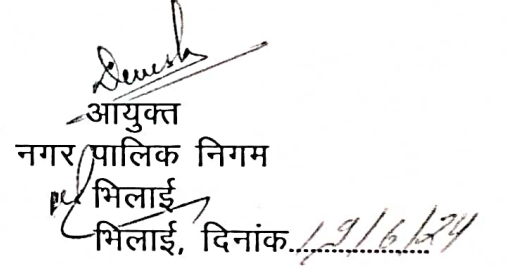 Devesh
आयुक्त
नगर पालिक निगम
भिलाई
भिलाई, दिनांक..................19/6/24